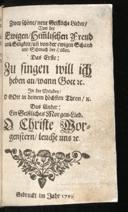 Zwey schöne/ neue Geistliche Lieder/
Von der
Ewigen/Himlischen Freud
und Seligkeit/ uñ von der ewigen Schand
und Schmach der Höllen.
Das Erste:
Zu singen will ich
heben an/wann Gott ꝛc.
In der Melodey:
O GOtt in deinem höchsten Thron/ ꝛc.
Das Ander:
Ein Geistliches Morgen-Lied.
O Christe Mor-
genstern/ leucht uns ꝛc.
Gedruckt im Jahr